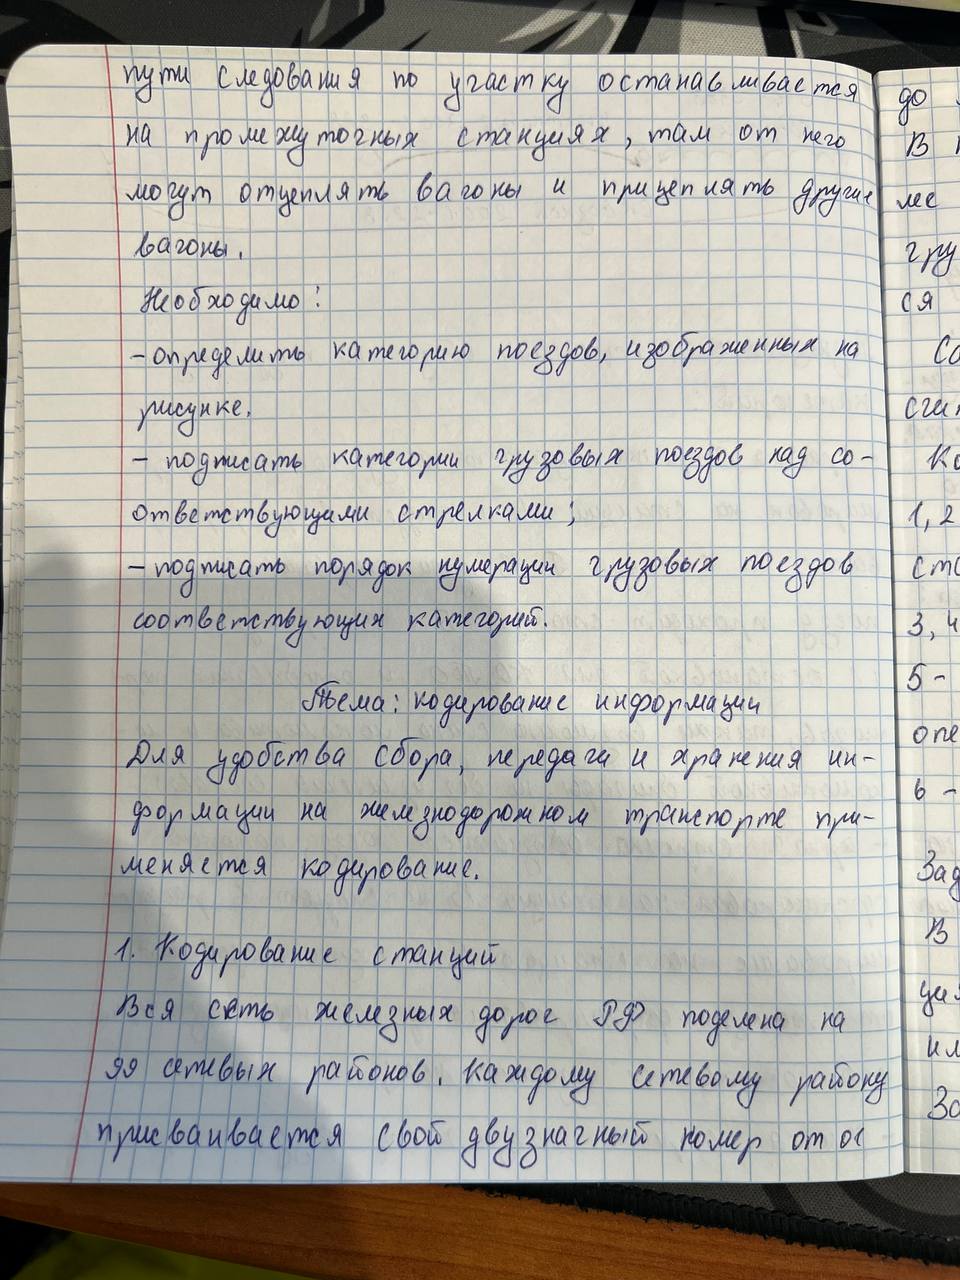 пути следования по участку останавливается
на промежуточных станциях, там от него
могут отцеплять вагоны и прицеплять другие
вагоны.
Необходимо:
- определить категорию поездов, изображенных на
рисунке.
- подписать категории грузовых поездов над со-
ответствующими стрелками;
- подписать порядок нумерации грузовых поездов
соответствующих категорий.
Тема: кодирование информации
Для удобства сбора, передачи и хранения ин-
формации на железнодорожном транспорте при-
меняется кодирование.
1. Кодирование станций
Вся сеть железных дорог РФ поделена на
99 сетевых районов. Каждому сетевому району
присваивается свой двузначный номер от 01
до
В
лес
гру
ся
Со
счит
Ко
1, 2
ста
3, 4
5 -
опе
6 -
Зад
В
ция
ил
За